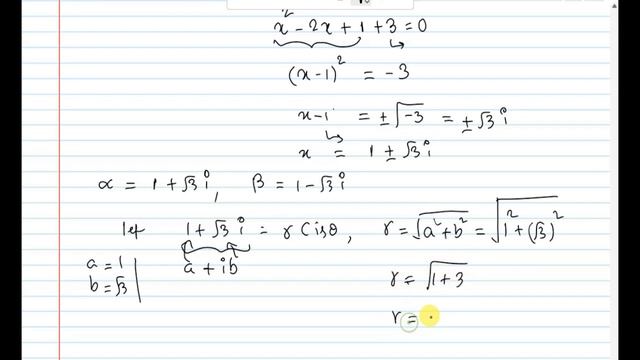 x² - 2x + 1 + 3 = 0
(x-1)² = -3
x-1 = ±√-3 = ±√3 i
x = 1 ± √3 i
α = 1 + √3 i, β = 1 - √3 i
let 1 + √3 i = r Cisθ, r = √a² + b² = √1² + (√3)²
a = 1
b = √3
a + ib
r = √1 + 3
r =